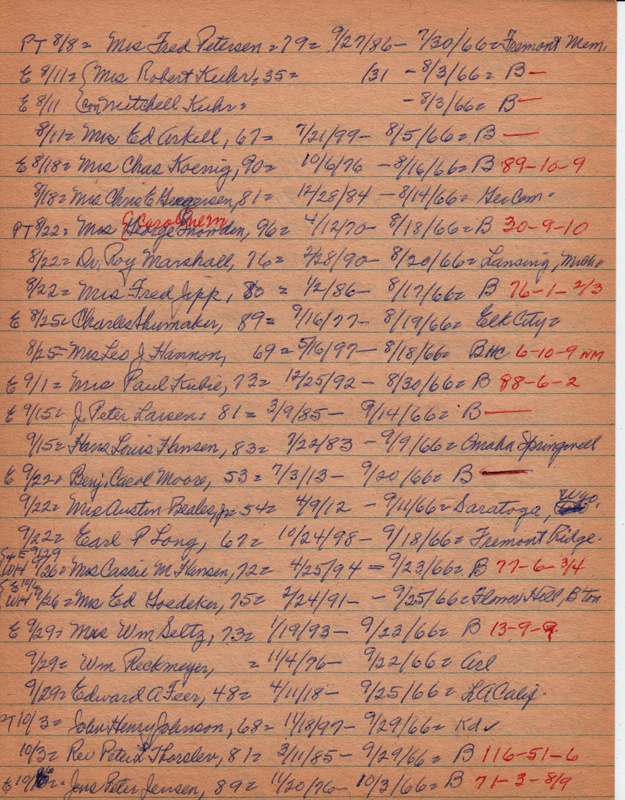 PT 8/8= Mrs Fred Petersen = 79= 9/27/86- 7/30/66= Fremont Mem.
E 8/11= { Mrs Robert Kuhr, 35= /31 - 8/3/66= B -
E 8/11 { Con Mitchell Kuhr= - 8/3/66= B -
8/11= Mrs Ed Arkell, 67= 7/21/99- 8/5/66= B -
E 8/18= Mrs Chas Koenig, 90= 10/6/76 - 8/16/66= B 89-10-9
8/18= Mrs Chris E 81= 12/28/84 - 8/14/66= Ger Cem.
PT 8/22= Mrs George Snowden, 96= 4/12/70- 8/18/66= B 30-9-10
8/22= Dr. Roy Marshall, 76= 2/28/90- 8/20/66= Lansing, Mich=
8/22= Mrs Fred Jipp, 80= 1/2/86- 8/17/66= B 76-1-2/3
E 8/25= Charles Shumaker, 89= 9/16/77- 8/19/66= Elk City=
8/25= Mrs Les J Hannon, 69= 5/16/97- 8/18/66= BHC 6-10-9 NM
E 9/1= Mrs Paul Kubie, 73= 12/25/92- 8/30/66= B 88-6-2
E 9/15= J. Peter Larsen= 81= 3/9/85- 9/14/66= B -
9/15= Hans Louis Hansen, 83= 7/22/83 - 9/9/66= Omaha Springwell
E 9/22= Benj. Carol Moore, 53= 7/3/13- 9/20/66= B -
9/22= Mrs Austin Beales, Jr= 54= 4/9/12 - 9/11/66= Saratoga, Wyo.
9/22= Earl P Long, 67= 10/24/98- 9/18/66= Fremont Ridge.
S+E 9/29
WH 9/26= Mrs Cassie M Hansen, 72= 4/25/94 = 9/23/66= B 77-6-3/4
WH 9/26= Mrs Ed Goedeker, 75= 2/24/91- - 9/25/66= Flower Hill, Bton
E 9/29= Mrs Wm Seltz, 73= 1/19/93- 9/23/66= B 13-9-9
9/29= Wm Reckmeyer, = 11/4/76- 9/22/66= Arl
9/29= Edward A Feer, 48= 4/11/18- 9/25/66= LA Calif.
PT 10/3= John Henry Johnson, 68= 11/18/97- 9/29/66= Kd
10/3= Rev Peter L Thorslev, 81= 3/11/85- 9/29/66= B 116-51-6
E 10/6= Jens Peter Jensen, 89= 11/20/76- 10/3/66= B 71-3-8/9